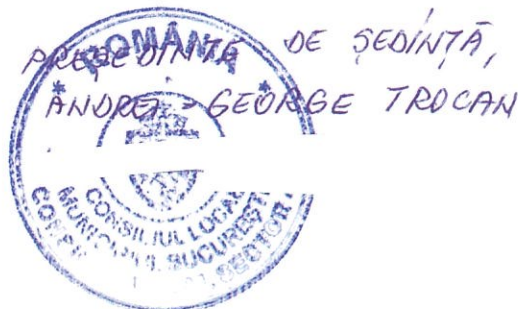 PREȘEDINTE DE ȘEDINȚĂ,
ANDREI - GEORGE TROCAN
ROMÂNIA
CONSILIUL LOCAL
MUNICIPIUL BUCUREȘTI
SECTOR